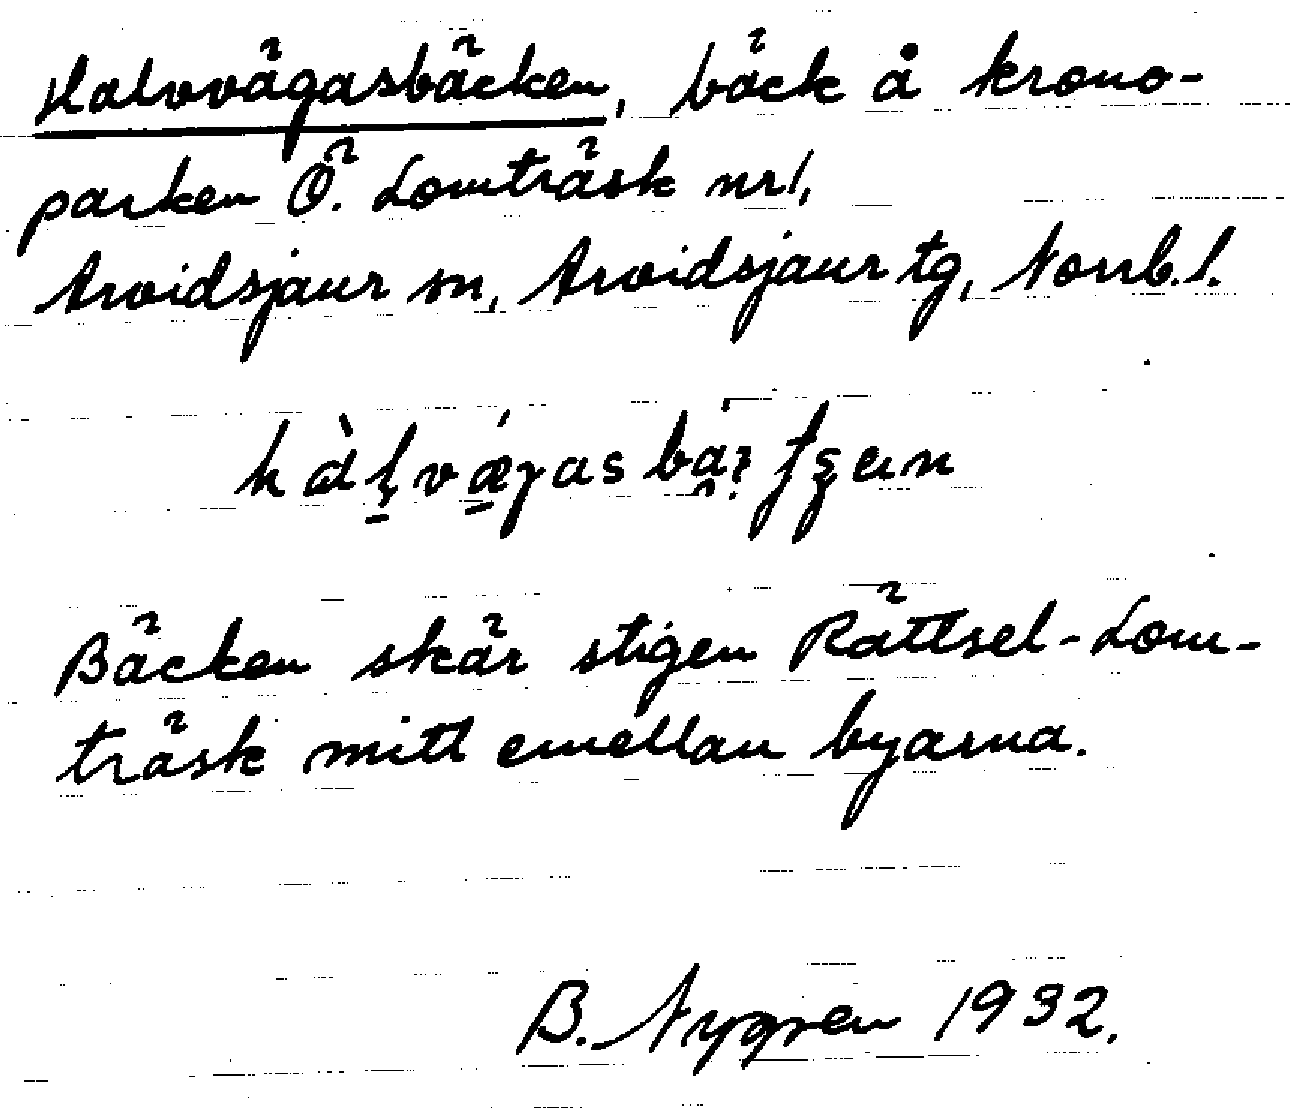 Halvvägasbäcken, bäck å krono-
parken Ö. Lomträsk nr 1,
Arvidsjaur sn, Arvidsjaur tg, Norrb. l.
Bäcken skär stigen Rättsel-Lom-
träsk mitt emellan byarna.
B. Nygren 1932.